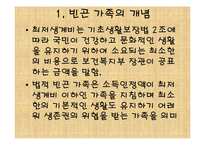 1. 빈곤 가족의 개념
• 최저생계비는 기초생활보장법 2조에
따라 국민이 건강하고 문화적인 생활
을 유지하기 위하여 소요되는 최소한
의 비용으로 보건복지부 장관이 공표
하는 금액을 말함.
• 법적 빈곤가족은 소득인정액이 최저
생계비 이하인 가족을 지칭하며 최소
한의 기본적인 생활도 유지하기 어려
워 생존권의 위협을 받는 가족을 의미